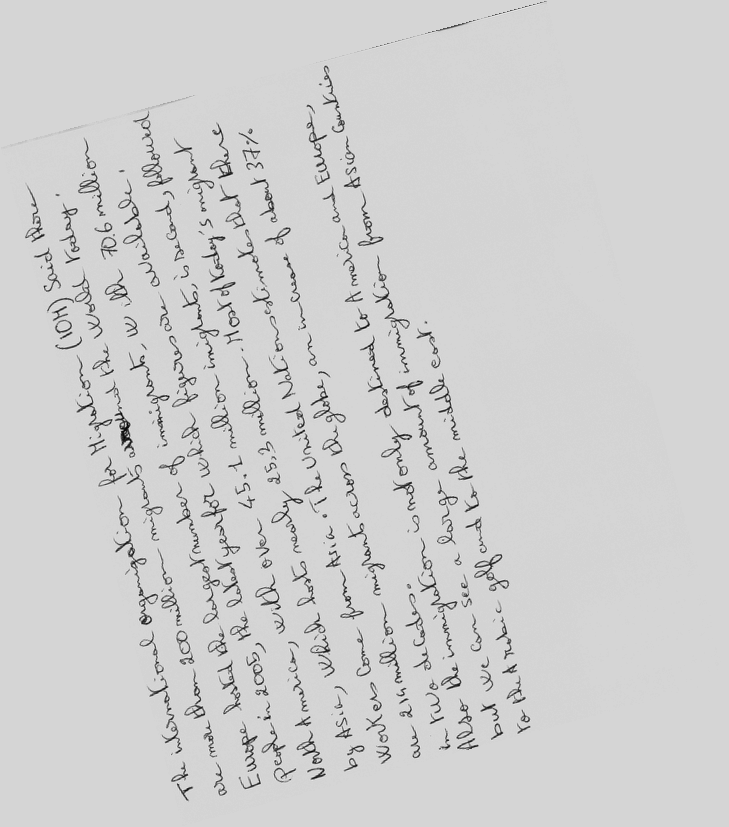 The international organization for Migration (IOM) Said there
are more than 200 million migrants around the world today.
Europe hosted the largest number of immigrants, with 70.6 million
people in 2005, the latest year for which figures are available.
North America, with over 45.1 million immigrants, is second, followed
by Asia, which hosts nearly 25.3 million. Most of today's migrant
workers come from Asia. The United Nations estimates that there
are 214 million migrants across the globe, an increase of about 37%
in two decades.
Also the immigration is not only destined to America and Europe,
but we can see a large amount of immigration from Asian Countries
to the Arabic golf and to the middle east.